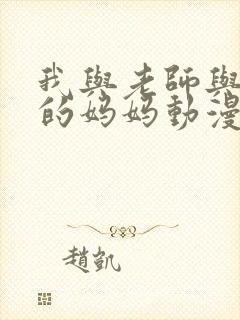 我與老師與
的媽媽動漫
趙凱